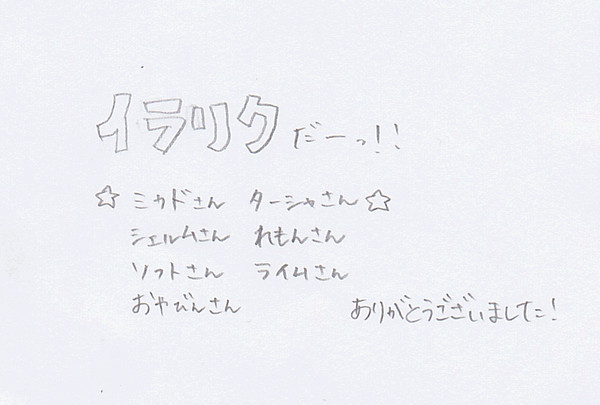 イラリクだーっ!!
☆ミカドさん ターシャさん☆
シェルムさん れもんさん
ソフトさん ライムさん
おやびんさん ありがとうございました!